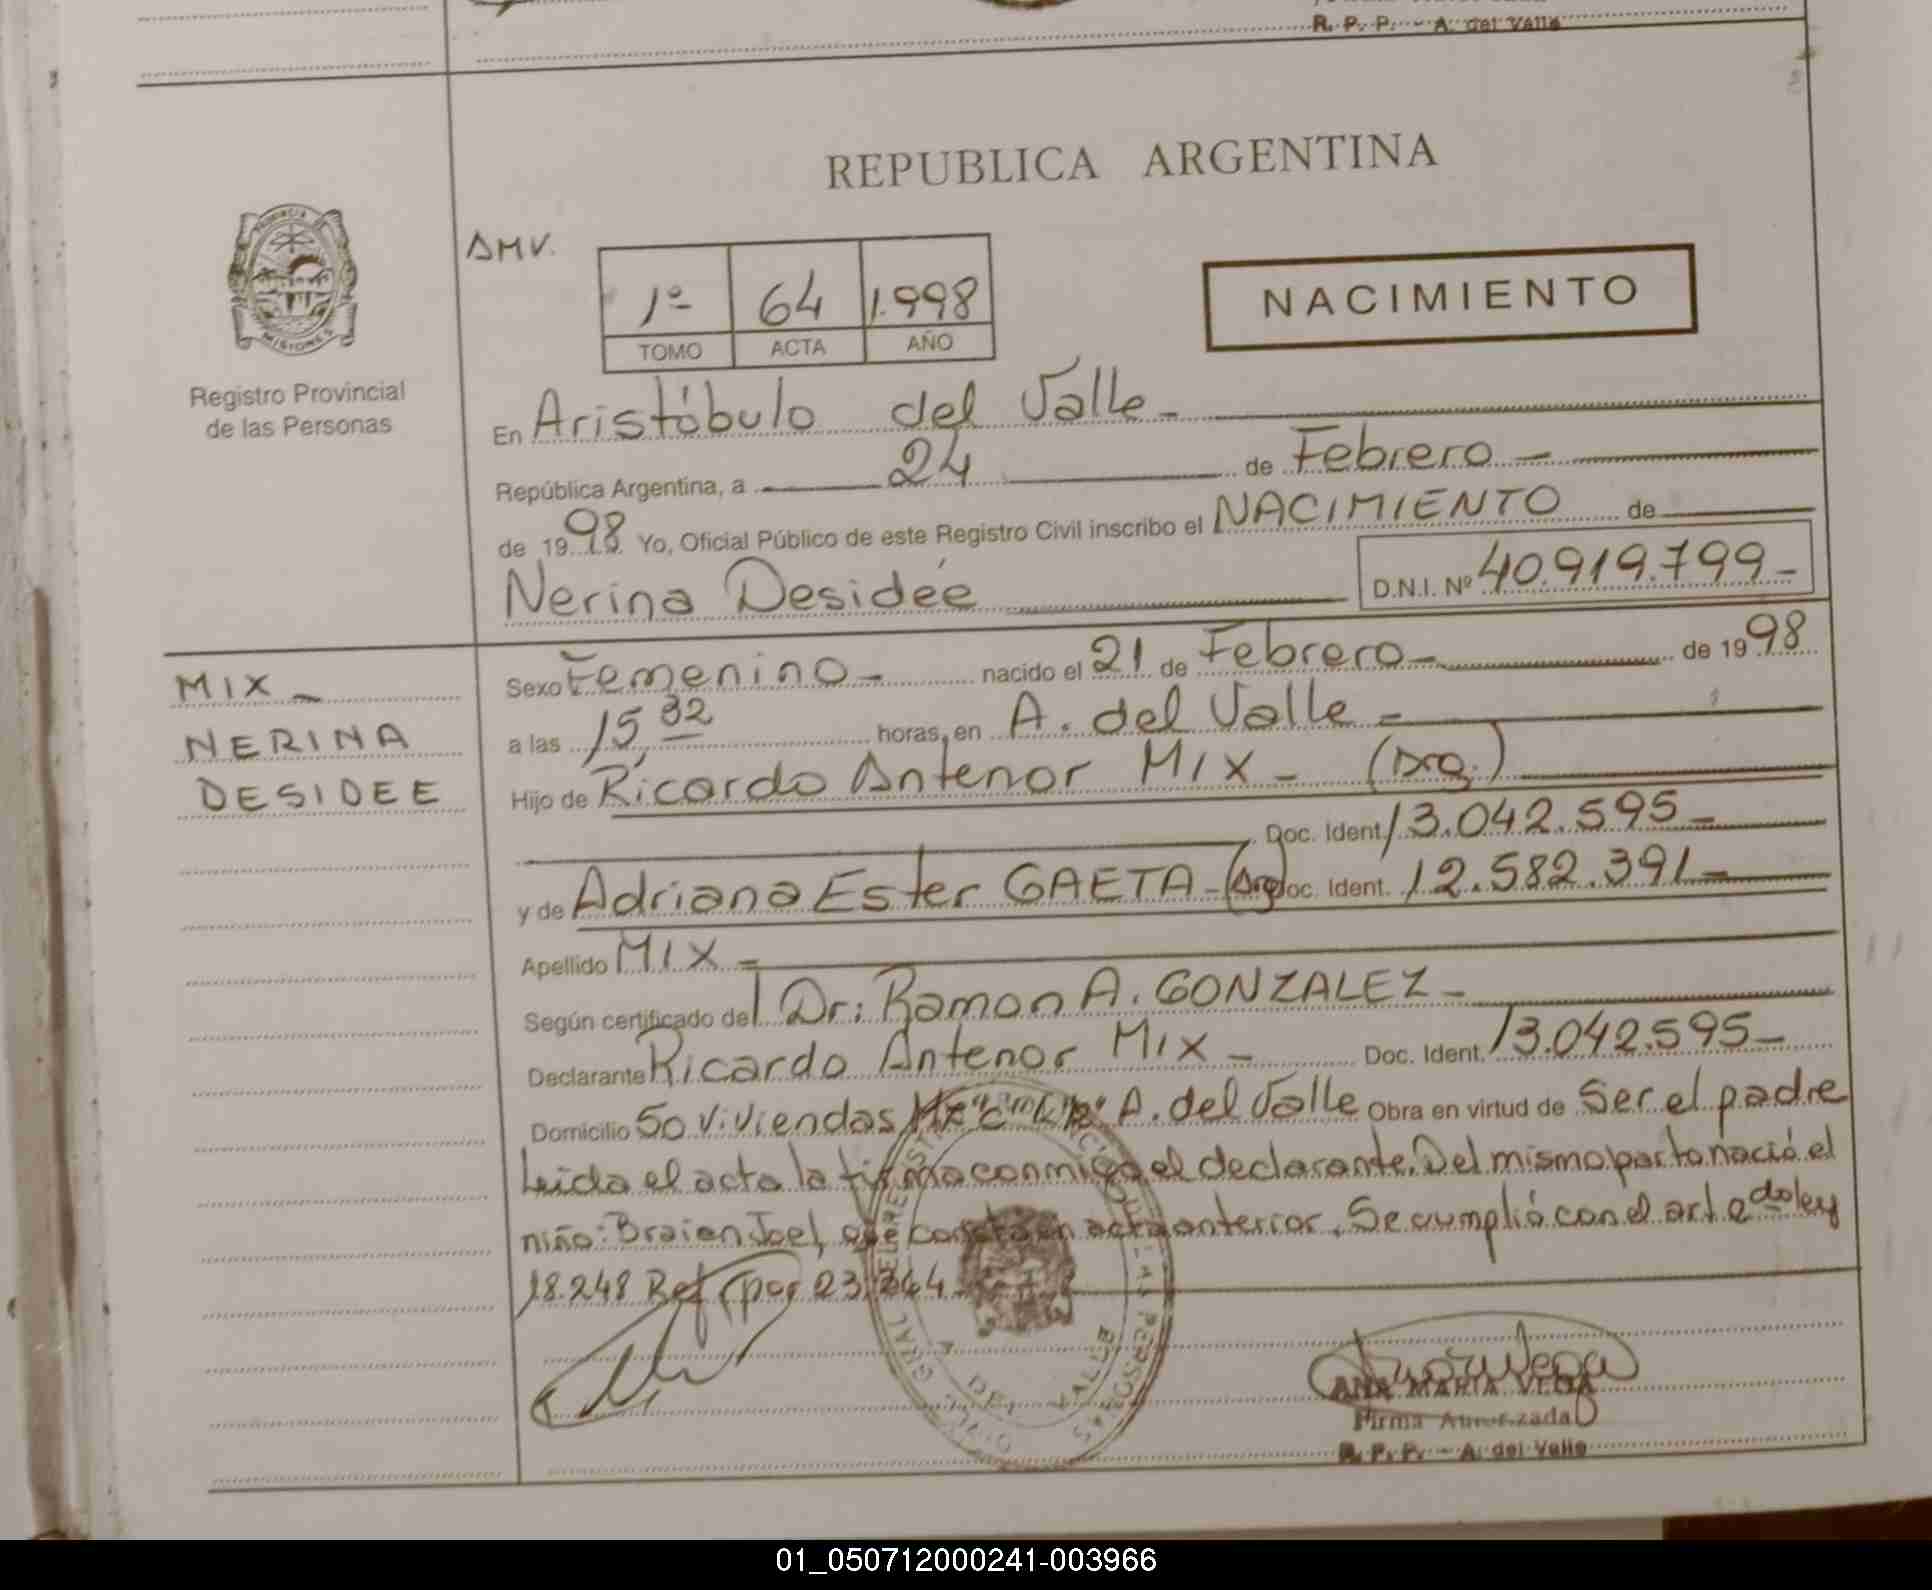 R. P. P. - A. del Valle
REPUBLICA ARGENTINA
PROVINCIA
MISIONES
Registro Provincial
de las Personas
AMV.
1º 64 1.998
TOMO ACTA AÑO
NACIMIENTO
En Aristóbulo del Valle -
República Argentina, a 24 de Febrero -
de 1998 Yo, Oficial Público de este Registro Civil inscribo el NACIMIENTO de
Nerina Desidée D.N.I. Nº 40.919.799-
MIX -
NERINA
DESIDEE
Sexo Femenino - nacido el 21 de Febrero - de 1998
a las 15,32 horas, en A. del Valle -
Hijo de Ricardo Antenor MIX - (Arg.)
Doc. Ident. 13.042.595 -
y de Adriana Ester GAETA - (Arg) Doc. Ident. 12.582.391 -
Apellido MIX -
Según certificado del Dr: Ramon A. GONZALEZ -
Declarante Ricardo Antenor Mix - Doc. Ident. 13.042.595 -
Domicilio 50 viviendas A. del Valle Obra en virtud de Ser el padre
Leida el acta la firma conmigo el declarante. Del mismo parto nació el
niño: Braien Joel, que consta en acta anterior. Se cumplió con el art 2do ley
18.248 Ref por 23.264
DEL VALLE
ANA MARIA VEGA
Firma Autorizada
R. P. P. - A. del Valle
01_050712000241-003966